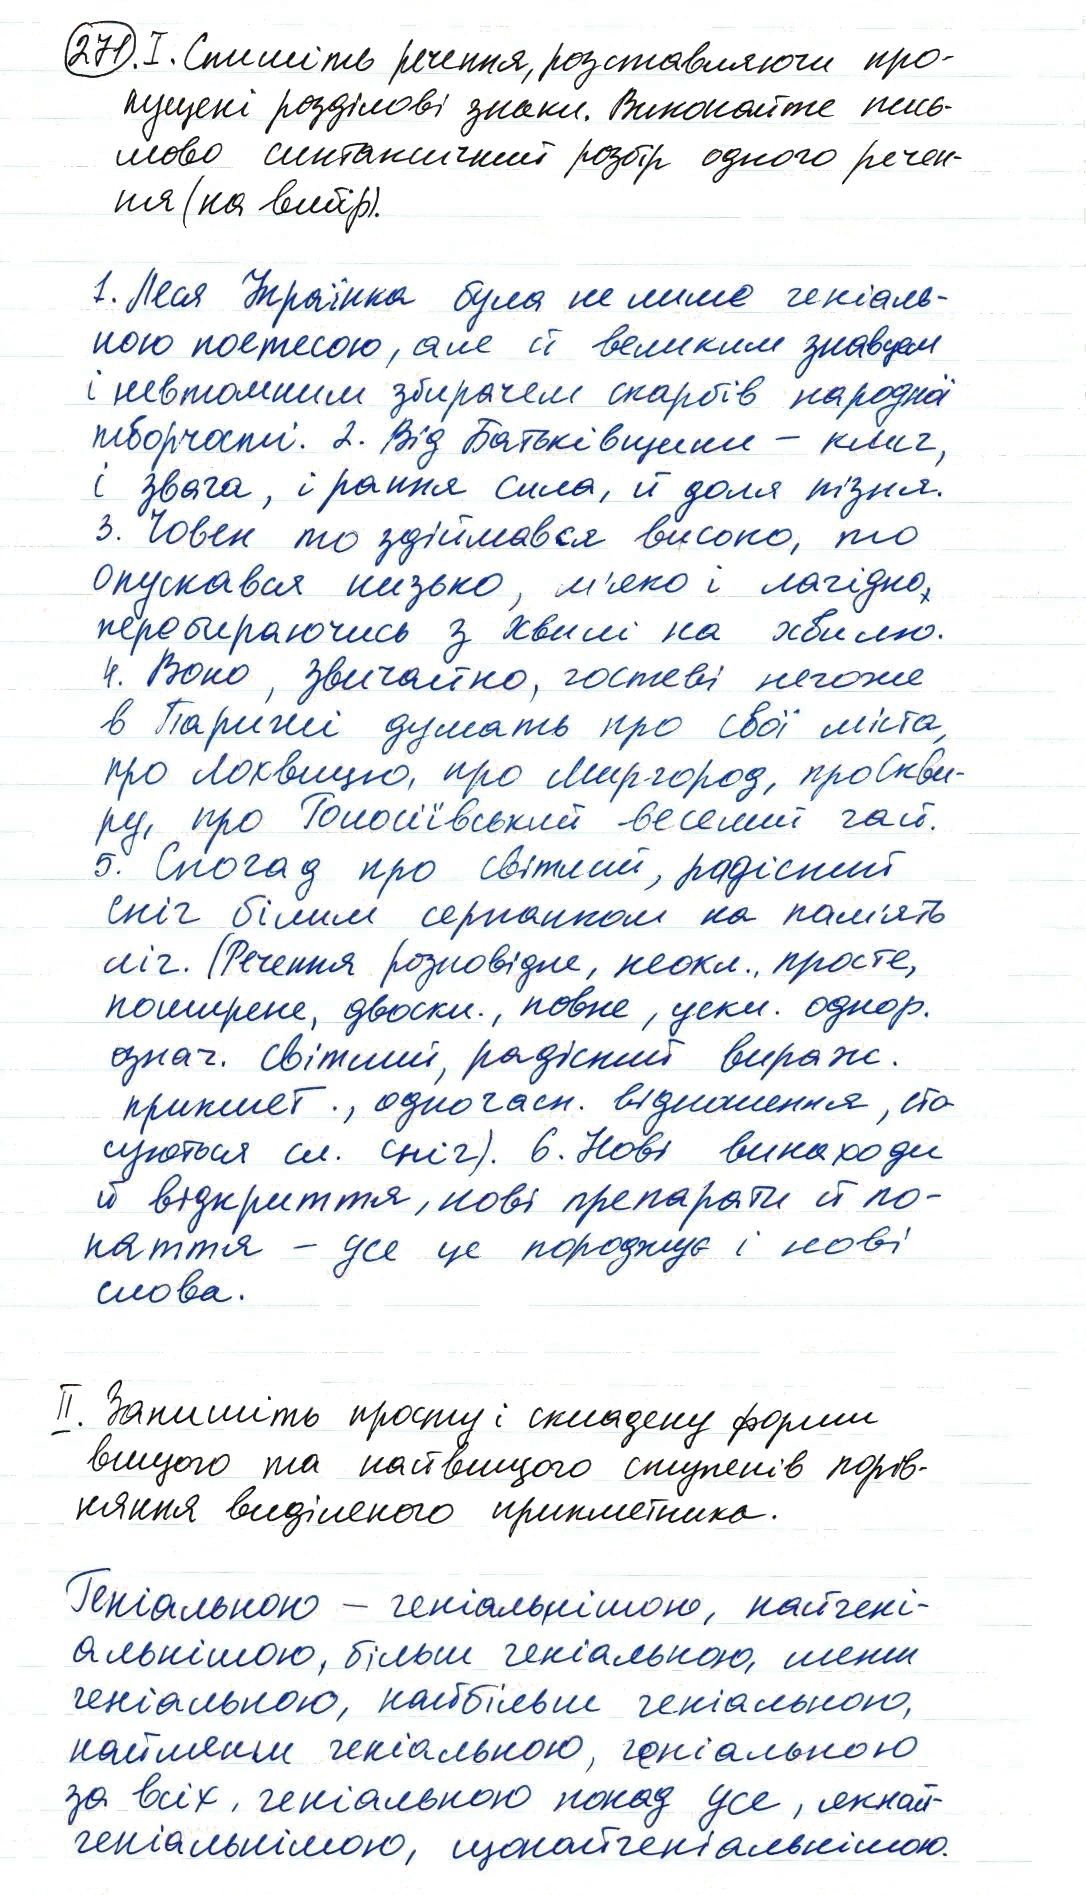 271. I. Спишіть речення, розставляючи про-
пущені розділові знаки. Виконайте пись-
мово синтаксичний розбір одного речен-
ня (на вибір).
1. Леся Українка була не лише геніаль-
ною поетесою, але й великим знавцем
і невтомним збирачем скарбів народної
творчості. 2. Від Батьківщини – клич,
і звага, і рання сила, й доля пізня.
3. Човен то здіймався високо, то
опускався низько, м'яко і лагідно,
перебираючись з хвилі на хвилю.
4. Воно, звичайно, гостеві негоже
в Парижі думать про свої міста,
про Лохвицю, про Миргород, про Скви-
ру, про Голосіївський веселий гай.
5. Спогад про світлий, радісний
сніг білим серпанком на пам'ять
ліг. (Речення розповідне, неокл., просте,
поширене, двоскл., повне, ускл. однор.
означ. світлий, радісний вираж.
прикмет., одночасн. відношення, сто
суються сл. сніг). 6. Нові винаходи
й відкриття, нові препарати й по-
няття – усе це породжує і нові
слова.
II. Запишіть просту і складену форми
вищого та найвищого ступенів порів-
няння виділеного прикметника.
Геніальною – геніальнішою, найгені-
альнішою, більш геніальною, менш
геніальною, найбільш геніальною,
найменш геніальною, геніальною
за всіх, геніальною понад усе, якнай-
геніальнішою, щонайгеніальнішою.